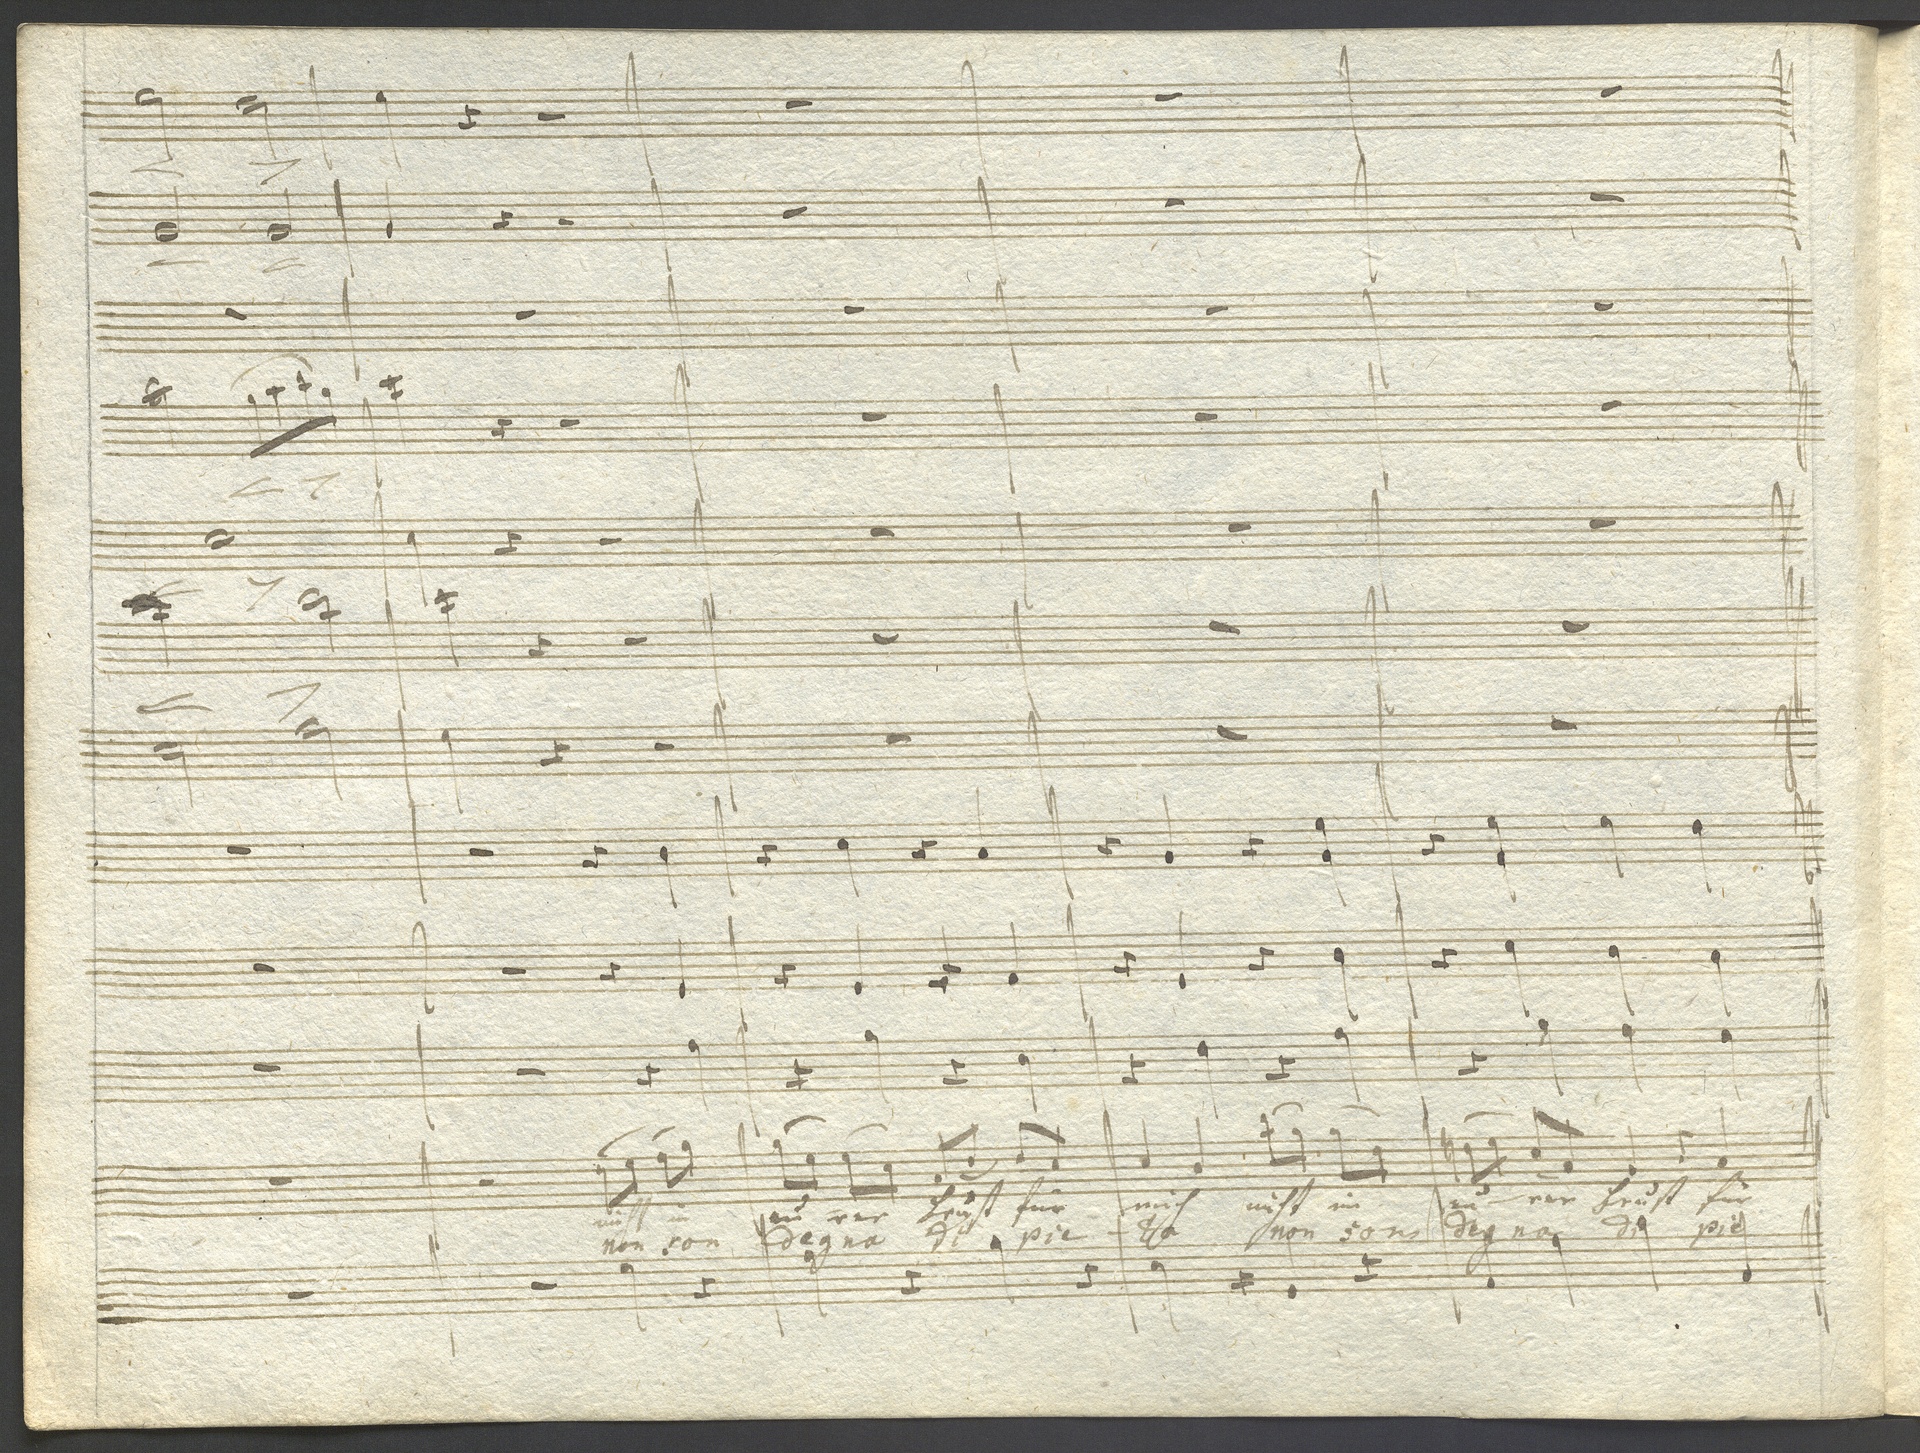 nicht in eurer Brust für mich nicht in eurer Brust für
non son degna di pie - ta non sono degna di pie